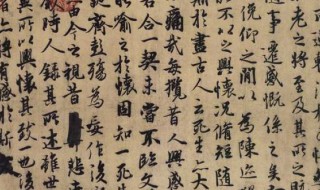 老之將至及其所之
隨事遷感慨係之矣
俛仰之間以為陳迹
不以之興懷況脩短隨
於盡古人云死生亦大
痛哉每攬昔人興感
若合一契未嘗不臨文
喻之於懷固知一死生
齊彭殤為妄作後
由今之視昔悲夫
時人錄其所述雖世
所以興懷其致一也後
者亦將有感於斯